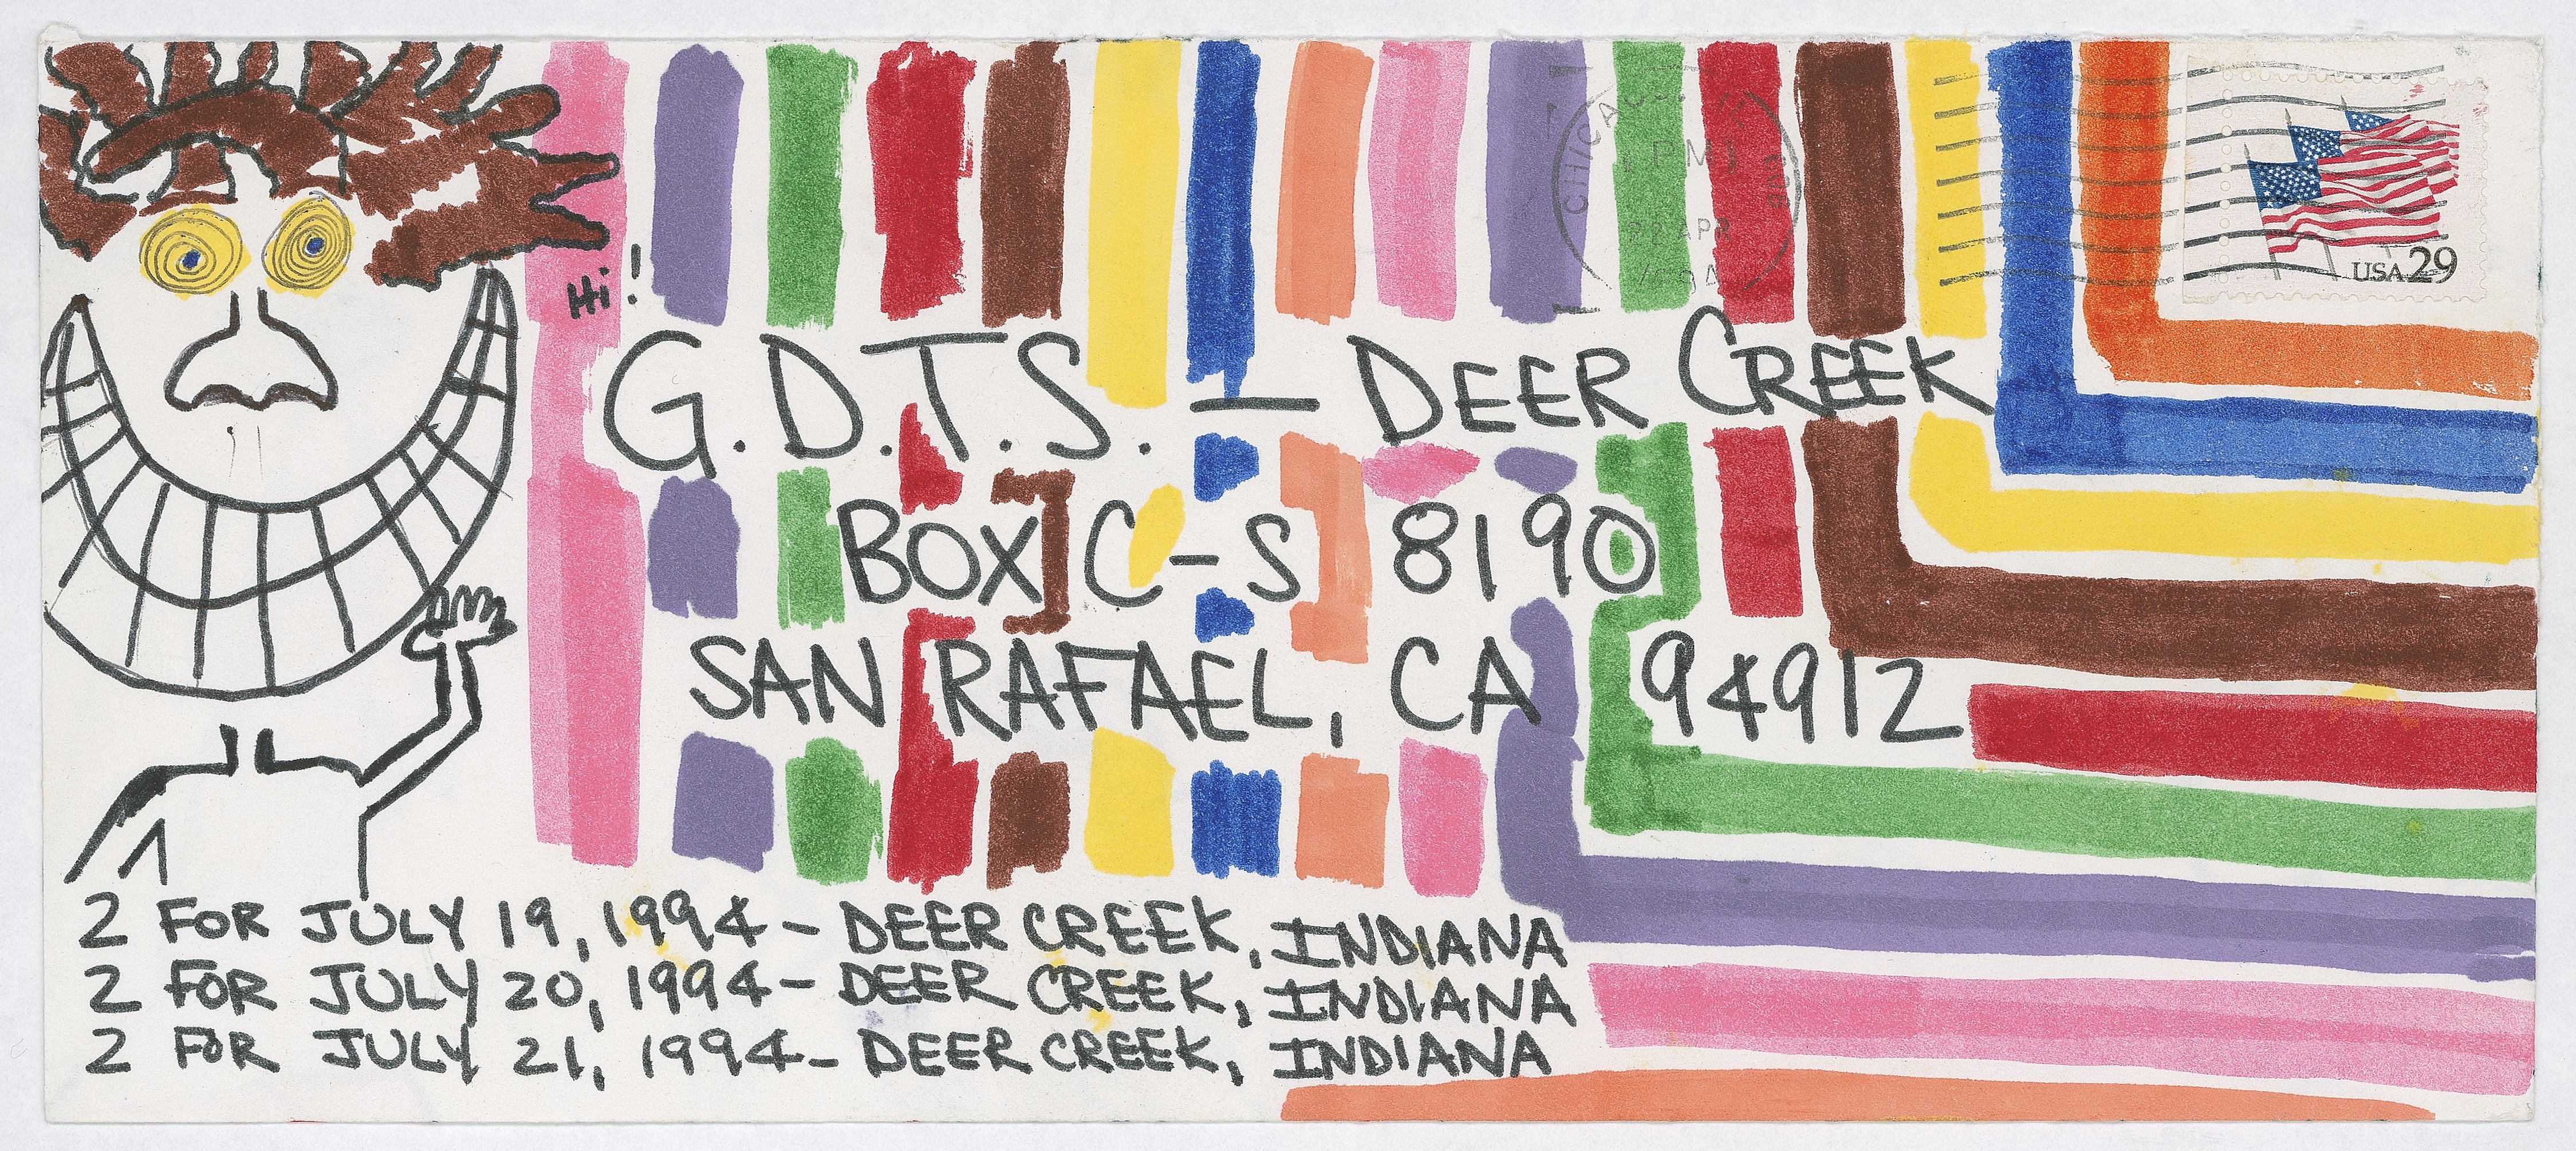 Hi!
G.D.T.S. — DEER CREEK
BOX C-S 8190
SAN RAFAEL, CA 94912
2 FOR JULY 19, 1994 - DEER CREEK, INDIANA
2 FOR JULY 20, 1994 - DEER CREEK, INDIANA
2 FOR JULY 21, 1994 - DEER CREEK, INDIANA
CHICAGO
PM
22 APR
USA 29